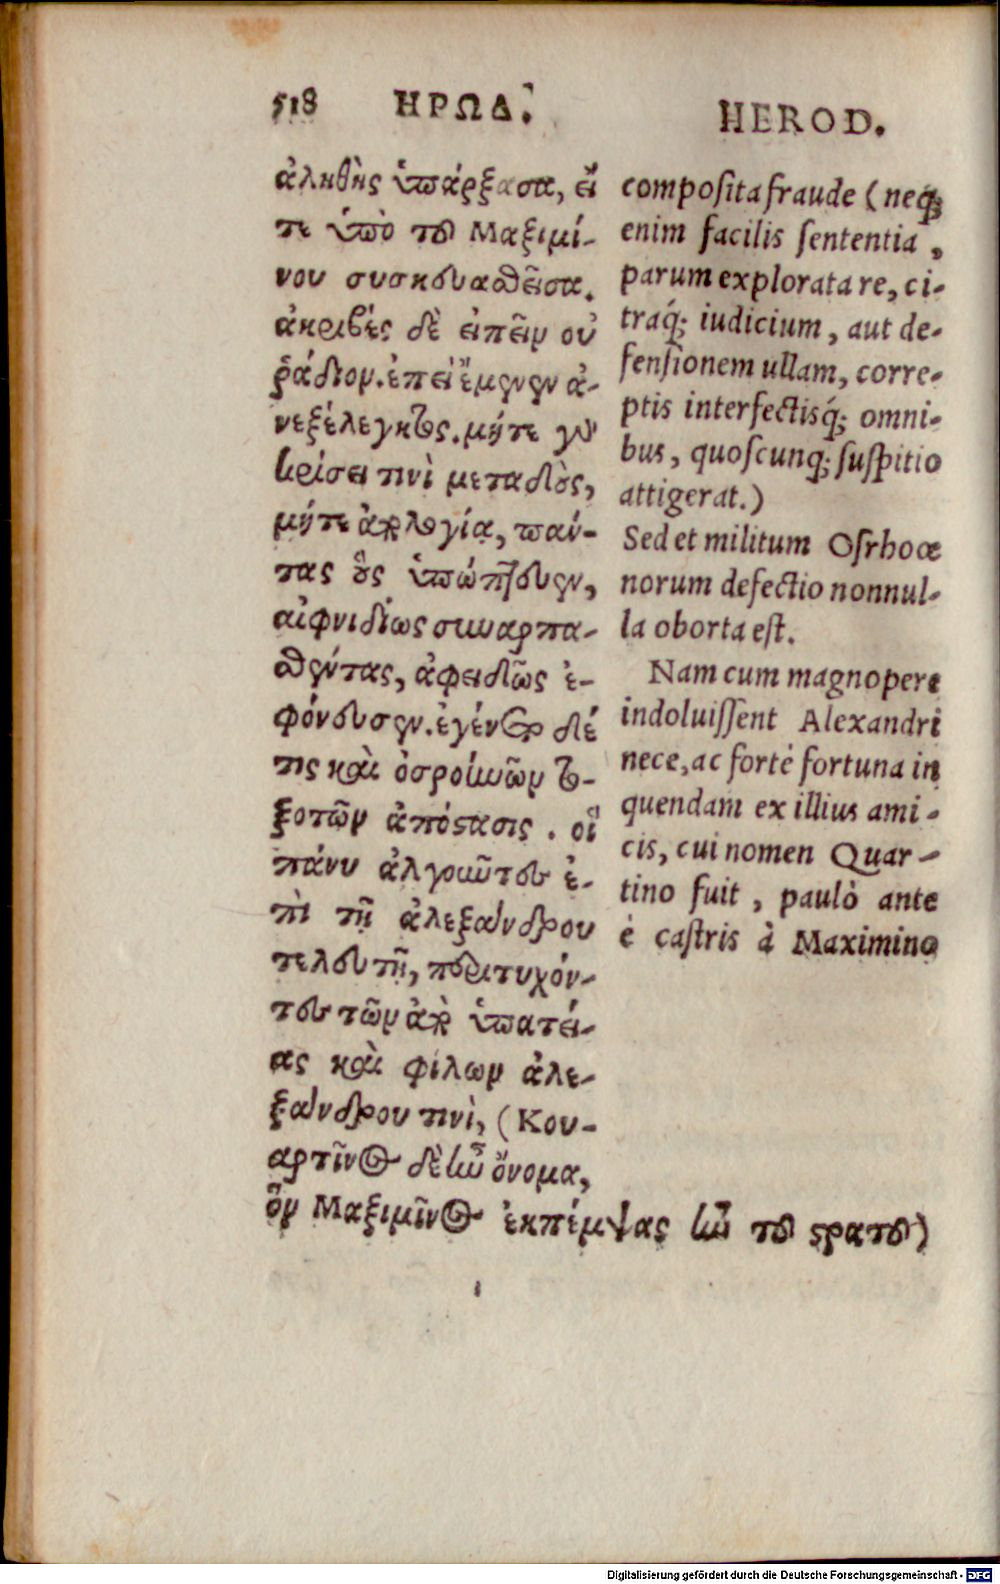 518 ΗΡΩΔ.
ἀληθὴς ὑπάρξασα, εἴ
τε ὑπὸ τοῦ Μαξιμί-
νου συσκευαθεῖσα.
ἀκριβὲς δὲ εἰπεῖν οὐ
ῥάδιον. ἐπεὶ ἔμεινεν ἀ-
νεξέλεγκτος. μήτε γὰρ
κρίσει τινὶ μεταδοὺς,
μήτε ἀπολογίᾳ, πάν-
τας οὓς ὑπώπτευεν,
αἰφνιδίως συναρπα-
σθέντας, ἀφειδῶς ἐ-
φόνευσεν. ἐγένετο δέ
τις καὶ ὀσροηνῶν το-
ξοτῶν ἀπόστασις. οἳ
πάνυ ἀλγοῦντες ἐ-
πὶ τῇ ἀλεξάνδρου
τελευτῇ, περιτυχόν-
τες τῶν ἀπὸ ὑπατεί-
ας καὶ φίλων ἀλε-
ξάνδρου τινὶ, (Κου-
αρτῖνος δὲ ἦν ὄνομα,
ὃν Μαξιμῖνος ἐκπέμψας ἦν τοῦ στρατοῦ)
HEROD.
composita fraude (neq́;
enim facilis sententia,
parum explorata re, ci-
traq́; iudicium, aut de-
fensionem ullam, corre-
ptis interfectisq́; omni-
bus, quoscunq; suspitio
attigerat.)
Sed et militum Osrhoœ
norum defectio nonnul-
la oborta est.
Nam cum magnopere
indoluissent Alexandri
nece, ac fortè fortuna in
quendam ex illius ami-
cis, cui nomen Quar-
tino fuit, paulò ante
è castris à Maximino
Digitalisierung gefördert durch die Deutsche Forschungsgemeinschaft - DFG